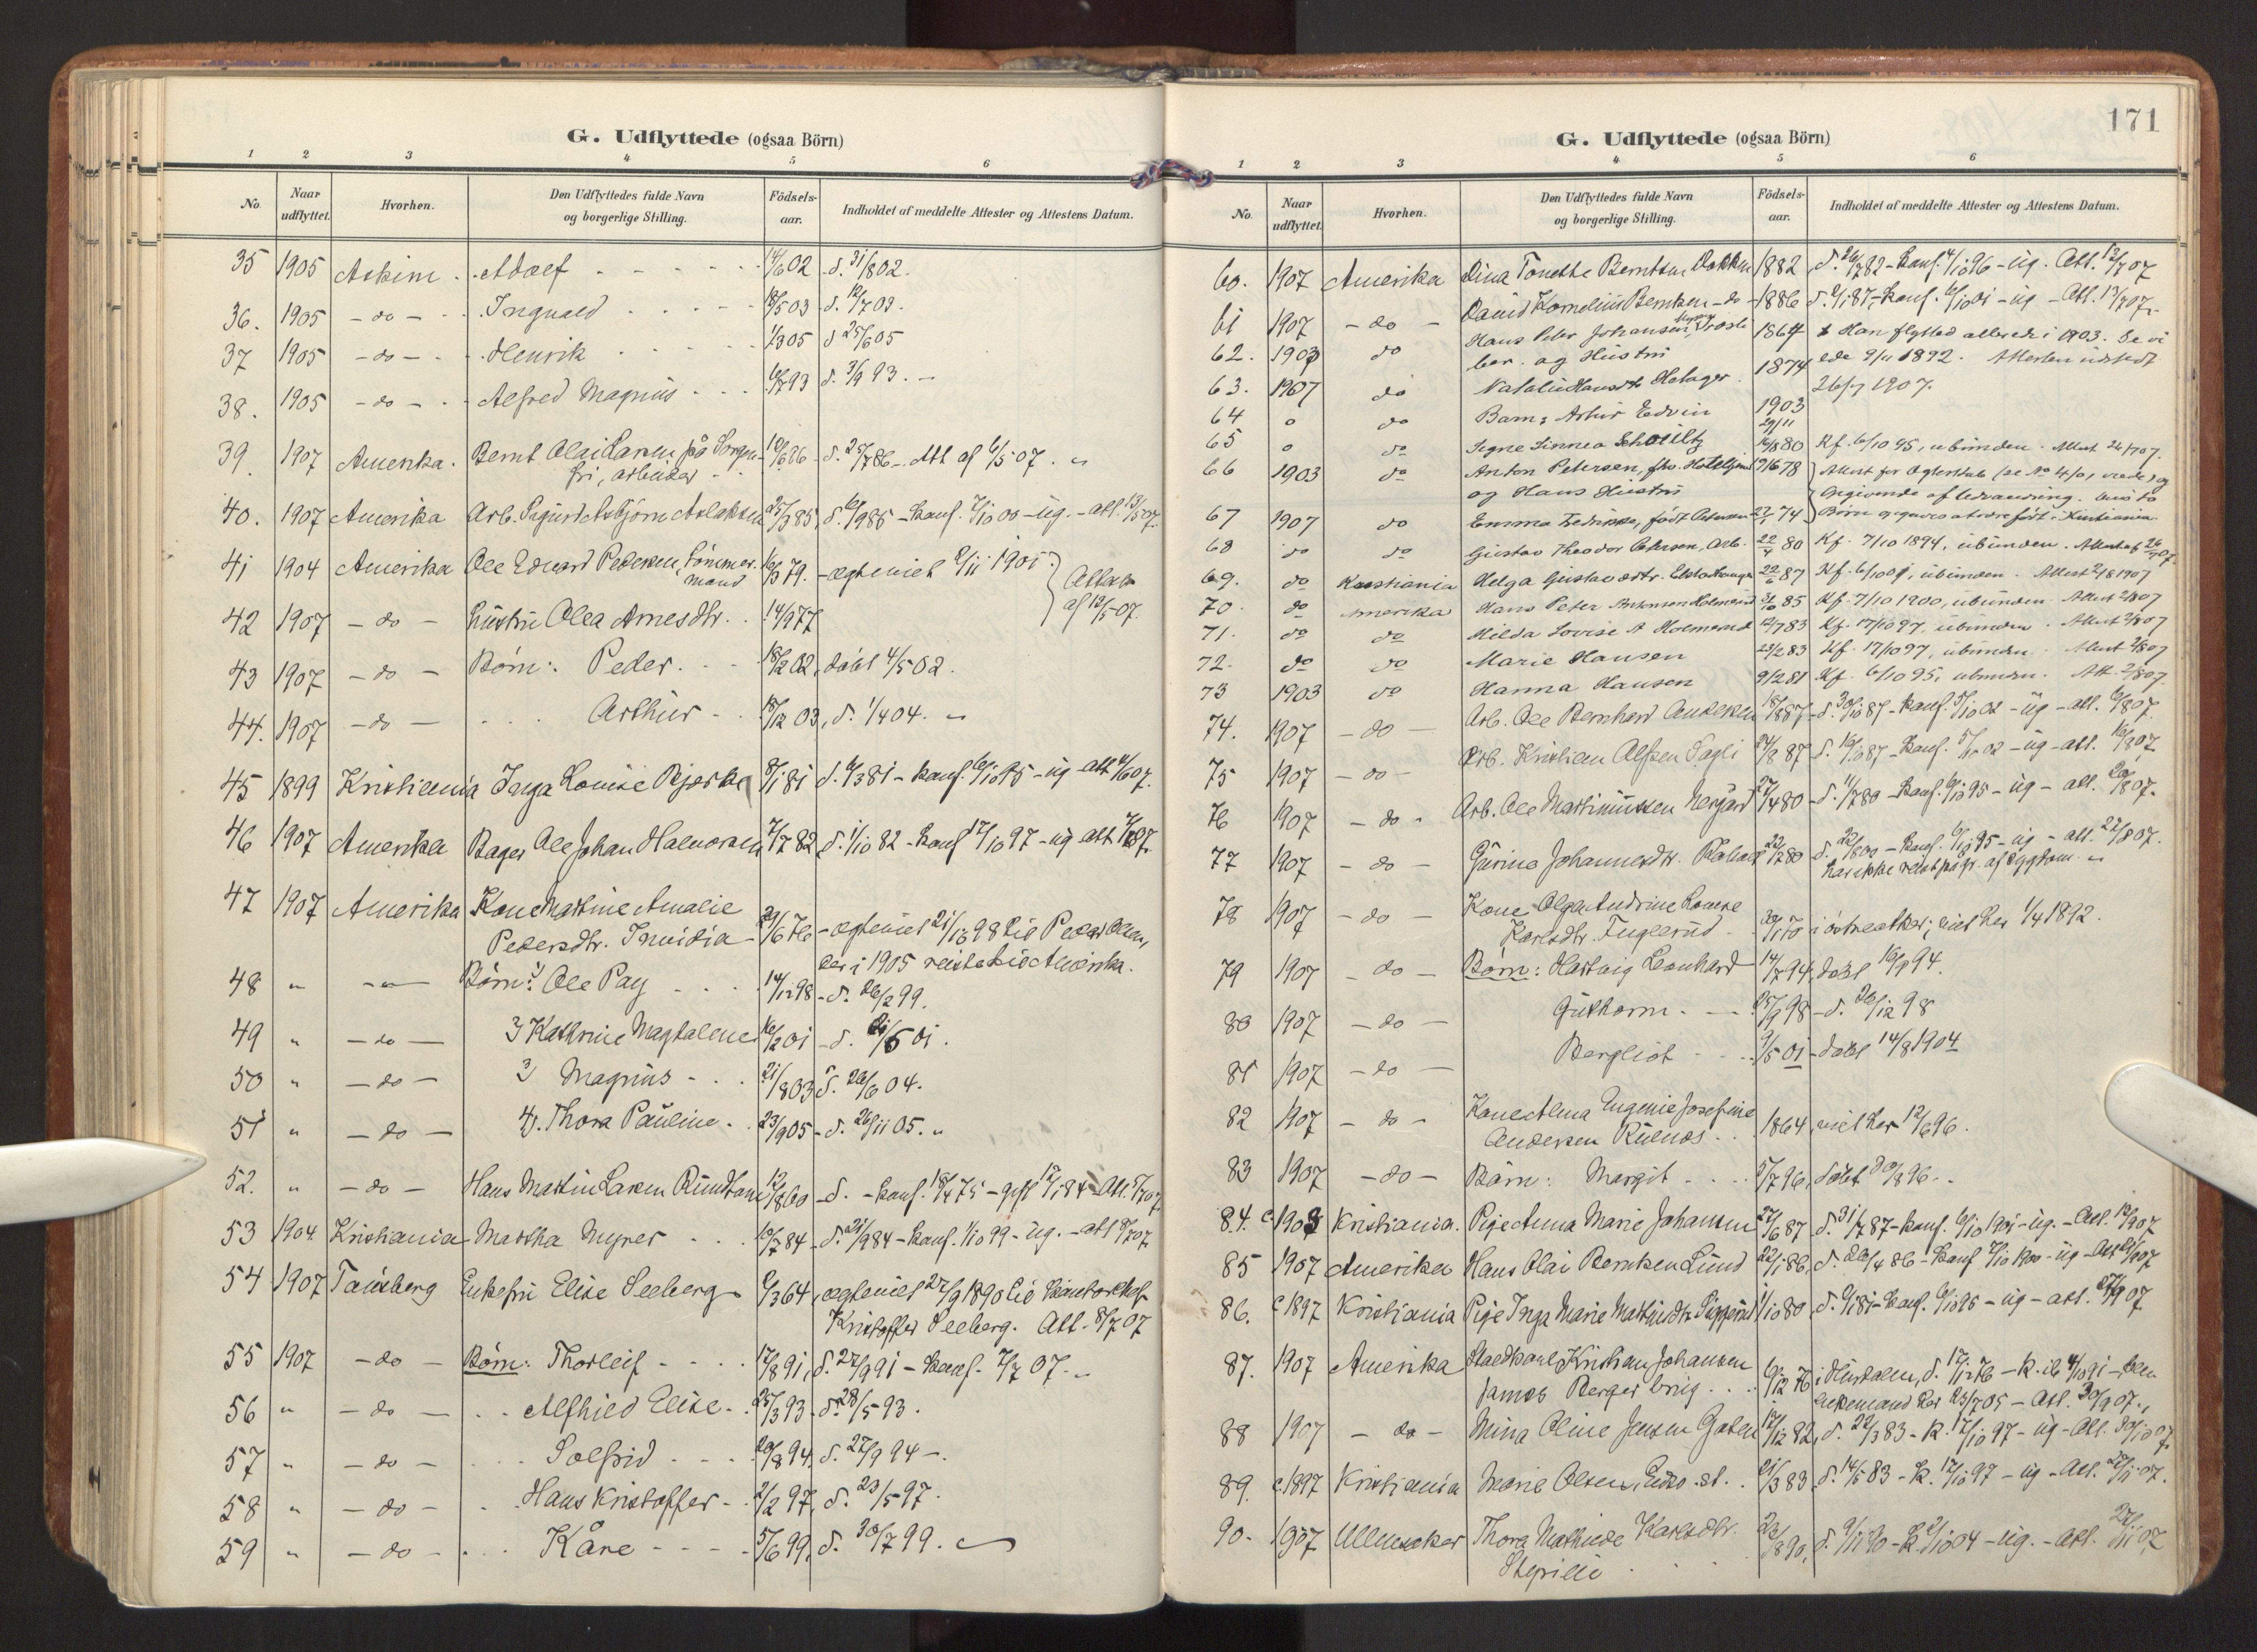 G. Udflyttede (ogsaa Börn)
1 2 3 4 5 6
No. Naar udflyttet. Hvorhen. Den Udflyttedes fulde Navn og borgerlige Stilling. Födsels-aar. Indholdet af meddelte Attester og Attestens Datum.
35 1905 Askim - Adolf - - 14/6 02 d. 31/8 02.
36. 1905 - do - Ingvald - - 18/5 03 d. 12/7 03.
37 1905 - do - Henrik 1/3 05 d 25/6 05
38. 1905 - do - Alfred Magnus - - 6/7 93 d. 3/9 93. -
39 1907 Amerika. Bernt Olai Larsen på Sorgen- 10/6 86 d. 25/7 86 - Att af 6/5 07.
fri, arbeider
40. 1907 Amerika Arb. Sigurd Asbjørn Aslaksen 25/3 85 d. 6/9 85 - konf. 7/10 00 - ug. - att. 13/5 07.
41 1904 Amerika Ole Edvard Pedersen, tömmer- 16/3 79. - ægteviet 2/11 1901.
mand
Attester
af 12/5 07.
42 1907 - do - hustru Olea Arnesdtr. 14/9 77
43 1907 - do - Børn: Peder. - 18/2 02, døbt 4/5 02.
44. 1907 - do - Arthur - 18/12 03, d. 1/4 04.
45 1899 Kristiania Inga Louise Bjerke 8/1 81 d. 6/3 81 - konf. 6/10 95 - ug - att 4/6 07.
46 1907 Amerika Bager Ole Johan Halvorsen 7/7 82 d. 1/10 82 - konf 17/10 97 - ug - att
47 1907 Amerika Kone Martine Amalie
Pedersdtr. Invidia 29/6 76 - ægteviet 21/12 98 til Peder Olsen,
der i 1905 reiste til Amerika.
48 " " Børn: 1) Ole Pay 14/12 98 - d. 26/2 99.
49 " - do - 2) Kathrine Magdalene 16/2 01 - d. 21/5 01.
50 " - do - 3) Magnus - - 21/8 03 d. 26/6 04.
51 " - do - 4). Thora Pauline. 23/9 05 - d. 26/11 05.
52. " - do - Hans Martin Larsen 12/8 60 - d. - konf. 18/4 75 - gift 12/1 84 - Att.
53 1904 Kristiania Martha Myrer - - 10/7 84 - d. 21/9 84 - konf. 1/10 99 - ug. - att
54 1907 Tønsberg Enkefru Elise Seeberg 6/3 64, ægteviet 27/9 1890 til
Kristoffer Seeberg. Att. 8/7 07
55 1907 - do - Børn: Thorleif - - 17/8 91, d. 27/9 91 - konf. 7/7 07.
56 " - do - Alfhild Elise. 25/3 93 - d. 28/5 93.
57 " - do - Solfrid 20/8 94. d. 27/9 94 -
58 " - do - Hans Kristoffer - 2/2 97, d. 23/5 97.
59 " - do - Kåre - - 5/6 99, d. 30/7 99.
171
G. Udflyttede (ogsaa Börn)
1 2 3 4 5 6
No. Naar udflyttet. Hvorhen. Den Udflyttedes fulde Navn og borgerlige Stilling. Födsels-aar. Indholdet af meddelte Attester og Attestens Datum.
60. 1907 Amerika Dina Tonette Berntsen Bakken 1882 - konf. 4/10 96 - ug. Att. 12/7 07
61 1907 - do - David Kornelius Berntsen - do - 1886 - konf. 6/10 01 - ug - Att.
62. 1903 do Hans Peter Johansen, 1864 Han flyttede allerede i 1903. De vi
ber. og Hustru
63. 1907 do Natalie Hansdtr Hotager. 1874 ede 9/11 1892. Attesten udstedt
26/7 1907.
64 " do Barn: Artur Edvin 1903 29/11
65 " do Signe Linnea Schoultz 16/8 80 Kf. 6/10 95, ubunden. Attest 26/7 07.
66 1903 do Anton Petersen, fhv. 19/6 78 Attest for Ægteskab (se No 4/0,
og Hans Hustru Opgivende af Udvandring.
67 1907 do Emma Fredrikke, født Petersen 27/1 74 Børn opgaves at være født i Kristiania.
68 do do Gustav Theodor Petersen, Arb. 22/4 80 Kf. 7/10 1894, ubunden. Attest af
69. do Kristiania Helga Gustavsdtr. 22/6 87 Kf. 6/10 01, ubunden. Attest 2/8 1907
70. do Amerika Hans Peter Antonsen Holmsrud 21/10 85 Kf. 7/10 1900, ubunden. Attest 2/8 07
71. do do Hilda Lovise A Holmsrud 12/7 83 Kf. 17/10 97, ubunden. Attest 2/8 07
72. do do Marie Hansen 23/2 83 Kf. 17/10 97, ubunden. Attest 2/8 07
73 1903 do Hanna Hansen 9/2 81 Kf. 6/10 95, ubunden. Att. 2/8 07.
74. 1907 - do - Arb. Ole Bernhard Andersen 18/8 87 - d. 30/10 87 - konf. 5/10 02 - ug - att. 6/8 07.
75 1907 - do - Arb. Kristian Alfsen Sagli 24/8 87 d. 16/10 87 - konf. 5/10 02 - ug - att. 16/8 07.
76 1907 - do - Arb. Ole Martinussen Nergård 27/4 80 - d. 11/7 80 - konf. 6/10 95 - ug - att. 20/8 07.
77 1907 - do - Gurine Johannesdtr. 22/7 80 d. 22/8 80 - konf. 6/10 95 - ug - att. 22/8 07.
har ikke reist på gr. af sygdom.
78 1907 - do - Kone Olga Andrine Lovise
Karlsdtr. Fuglerud - 30/1 70 i østre Aker; viet her 1/4 1892.
79 1907 - do - Børn: Hartvig Leonhard 14/7 94, døbt 16/9 94.
80 1907 - do - Guthorm. - 25/9 98 - d. 26/12 98
81 1907 - do - Bergliot - 9/5 01 - døbt 14/8 1904
82 1907 - do - Kone Alma Eugenie Josefine
Andersen 1864, viet her 12/6 96.
83 1907 - do - Børn: Margit - 5/7 96, døbt 30/8 96.
84. c. 1903 Kristiania. Pige Anna Marie Johansen 27/6 87 d. 31/7 87 - konf. 6/10 1901 - ug. - Att. 19/9 07
85 1907 Amerika Hans Olai Berntsen Lund 22/1 86, d. 26/4 86 - konf 7/10 1900 - ug - Att
86. c 1897 Kristiania Pige Inga Marie Mathisdtr. 1/10 80 d. 6/1 81 - konf. 6/10 95 - ug - att. 27/9 07
87. 1907 Amerika Staldkarl Kristian Johansen
James Berger brug 6/12 76 i Hurdalen, d. 17/12 76 - k. ib 4/10 91 - blev
enkemand her 23/7 05 - Att. 30/9 07.
88 1907 - do - Mina Oline Jensen 17/12 82, d. 22/3 83 - k. 17/10 97 - ug - att.
89. c. 1897 Kristiania Marie Olsen, 21/3 83, d. 14/5 83 - k. 17/10 97 - ug - Att.
90. 1907 Ullensaker Thora Mathilde Karlsdtr. 23/8 90, - k 2/10 04 - ug. - att.